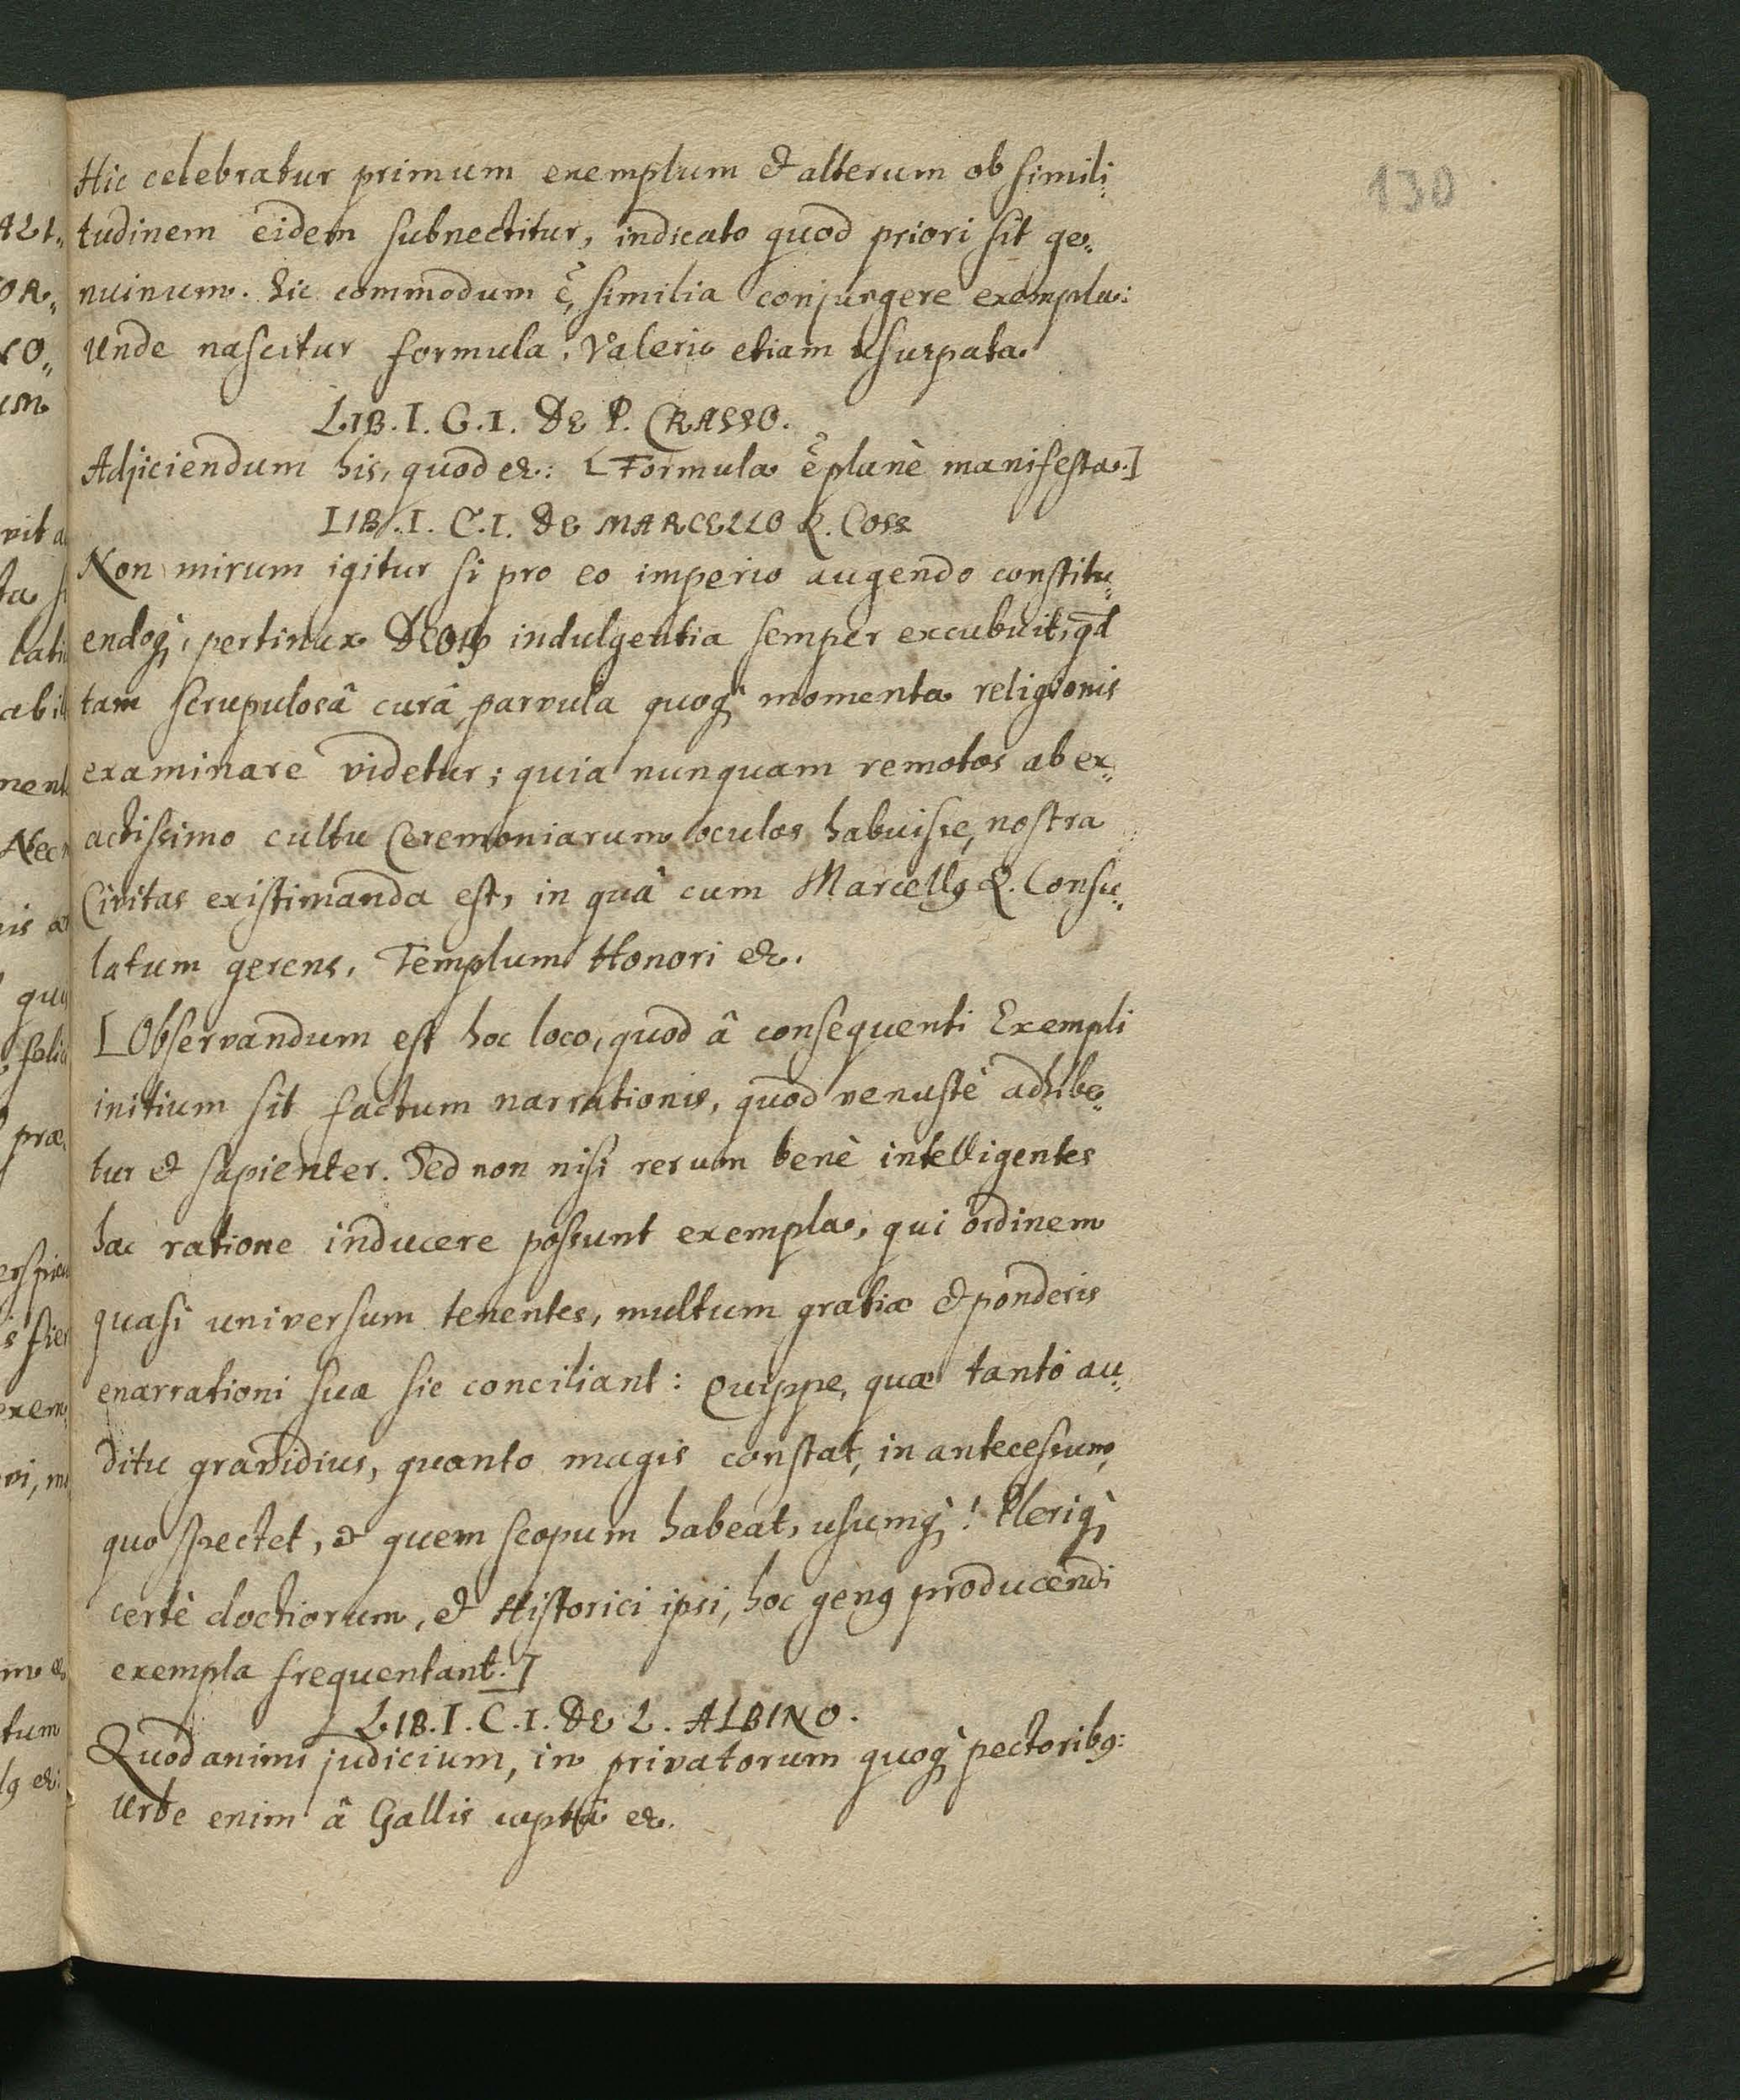 130
Hic celebratur primum exemplum & alterum ob simili„
tudinem eidem subnectitur, indicato quod priori sit ge„
nuinum. Sic commodum ẽ, similia conjungere exempla:
Unde nascitur formula, Valerio etiam usurpata.
LIB. I. C. I. DE P. CRASSO.
Adjiciendum his, quod &c: [Formula ẽ planè manifesta.]
LIB. I. C. I. DE MARCELLO Q. COSS
Non mirum igitur si pro eo imperio augendo constitu„
endoq̀, pertinax DEOꝝ indulgentia semper excubuit, qd̄
tam scrupulosâ curâ parvula quoq̀ momenta religionis
examinare videtur; quia nunquam remotos ab ex„
actissimo cultu Ceremoniarum oculos habuisse, nostra
Civitas existimanda est, in quâ cum Marcellꝰ Q. Consu„
latum gerens, Templum Honori &c.
[Observandum est hoc loco, quod â consequenti Exempli
initium sit factum narrationis, quod venustè adhibe„
tur & sapienter. Sed non nisi rerum benè intelligentes
hac ratione inducere possunt exempla, qui ordinem
quasi universum tenentes, multum gratiæ & ponderis
enarrationi suæ sic conciliant: Quippe, quæ tantò au„
ditu grandius, quanto magis constat, in antecessum,
quo spectet, & quem scopum habeat, usumq̀! Pleriq̀
certè doctiorum, & Historici ipsi, hoc genꝰ producendi
exempla frequentant.]
LIB. I. C. I. DE L. ALBINO.
Quod animi judicium, in privatorum quoq̀ pectoribꝰ:
Urbe enim â Gallis captâ &c.